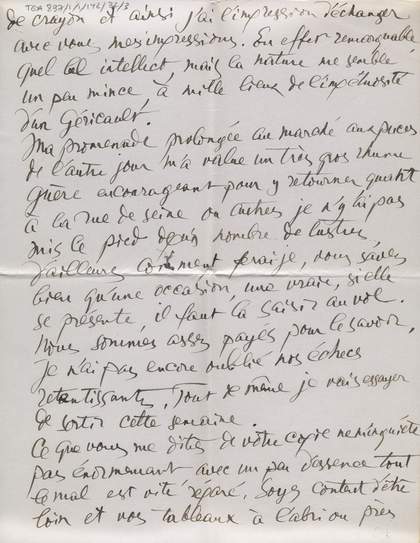 TGA 897/1/1/146/32/3
de crayon et ainsi j'ai l'impression d'échanger
avec vous mes impressions. En effet remarquable
quel bel intellect, mais la nature me semble
un peu mince à mille lieux de l'impétuosité
d'un Géricault.
Ma promenade prolongée au marché aux puces
de l'autre jour m'a value un très gros rhume
guère encourageant pour y retourner quant
à la rue de seine ou autres je n'y ai pas
mis le pied depuis nombre de lustres
d'ailleurs comment ferais je, vous savez
bien qu'une occasion, une vraie, si elle
se présente, il faut la saisir au vol.
Nous sommes assez payés pour le savoir,
je n'ai pas encore oublié nos échecs
retentissants, Tout de même je vais essayer
de sortir cette semaine.
Ce que vous me dites de votre copie ne m'inquiète
pas énormement avec un peu d'essence tout
le mal est vite réparé. Soyez content d'être
loin et vos tableaux à l'abri ou pres